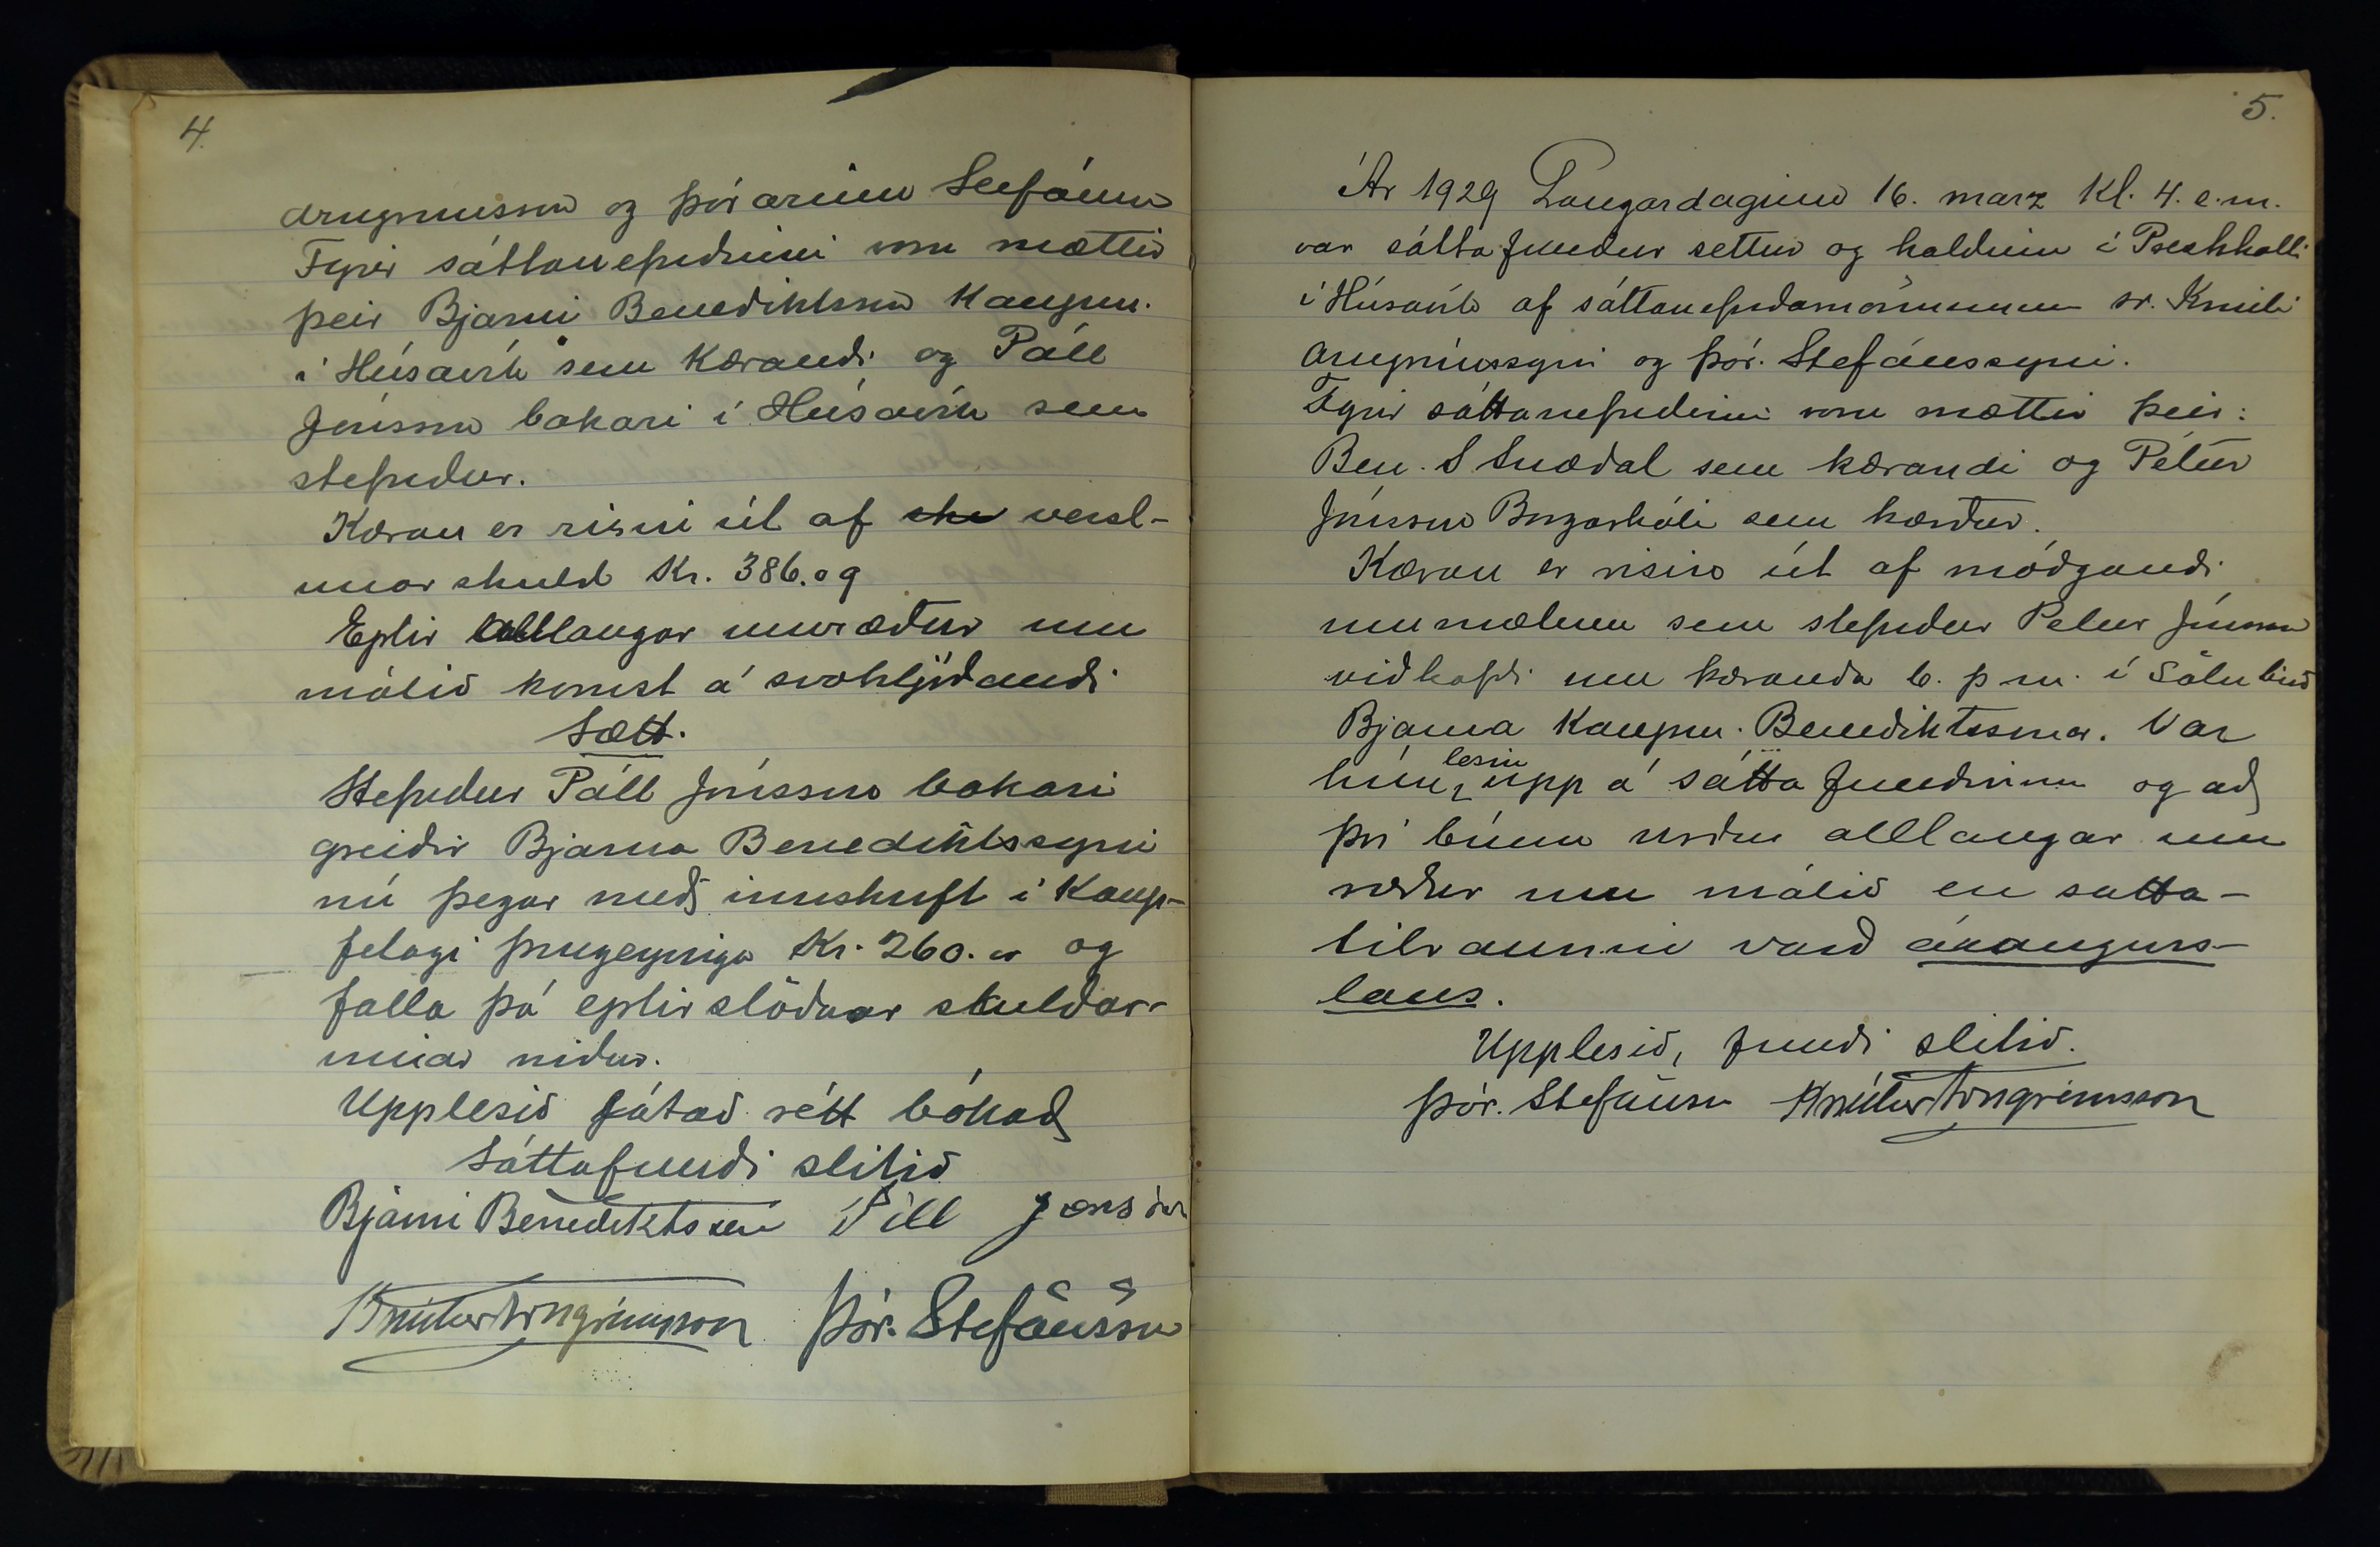 4.
Arngrímsson og Þórarinn Stefánsson
Fyrir sáttanefndinni voru mættir
þeir Bjarni Benediktsson Kaupm.
í Húsavík sem kærandi og Páll
Jónsson bakari í Húsavík sem
stefndur.
Kæran er risin út af sku versl-
unar skuld Kr. 386.09
Eptir alllangar umræður um
málið komst á svohljóðandi
Sætt.
Stefndur Páll Jónsson bakari
greiðir Bjarna Benediktssyni
nú þegar með innskrift í Kaup-
felagi Þingeyinga Kr. 260.oo og
falla þá eptirstöðvar skuldar-
innar niður.
Upplesið játað rétt bókað
Sáttafundi slitið
Bjarni Benediktsson Páll Jónsson
Knútur Arngrímsson Þór. Stefánsson
5.
Ár 1929 Laugardaginn 16. marz Kl. 4. e.m.
var sáttafundur settur og haldinn í Presthvolli
í Húsavík af sáttanefndamönnunum sr. Knúti
Arngrímssyni og Þór. Stefánssyni.
Fyrir sáttanefndinni voru mættir þeir:
Ben. S Snædal sem kærandi og Pétur
Jónsson Borgarhóli sem kærður.
Kæran er risin út af móðgandi
ummælum sem stefndur Petur Jónsson
viðhafði um kæranda 6. þ m. í Sölubúð
Bjarna Kaupm. Benediktssonar. Var
hún lesin upp á sáttafundinum og að
því búnu urðu alllangar um
ræður um málið en sátta-
tilraunin varð árangurs-
laus.
Upplesið, fundi slitið.
Þór. Stefánsson Knútur Arngrímsson